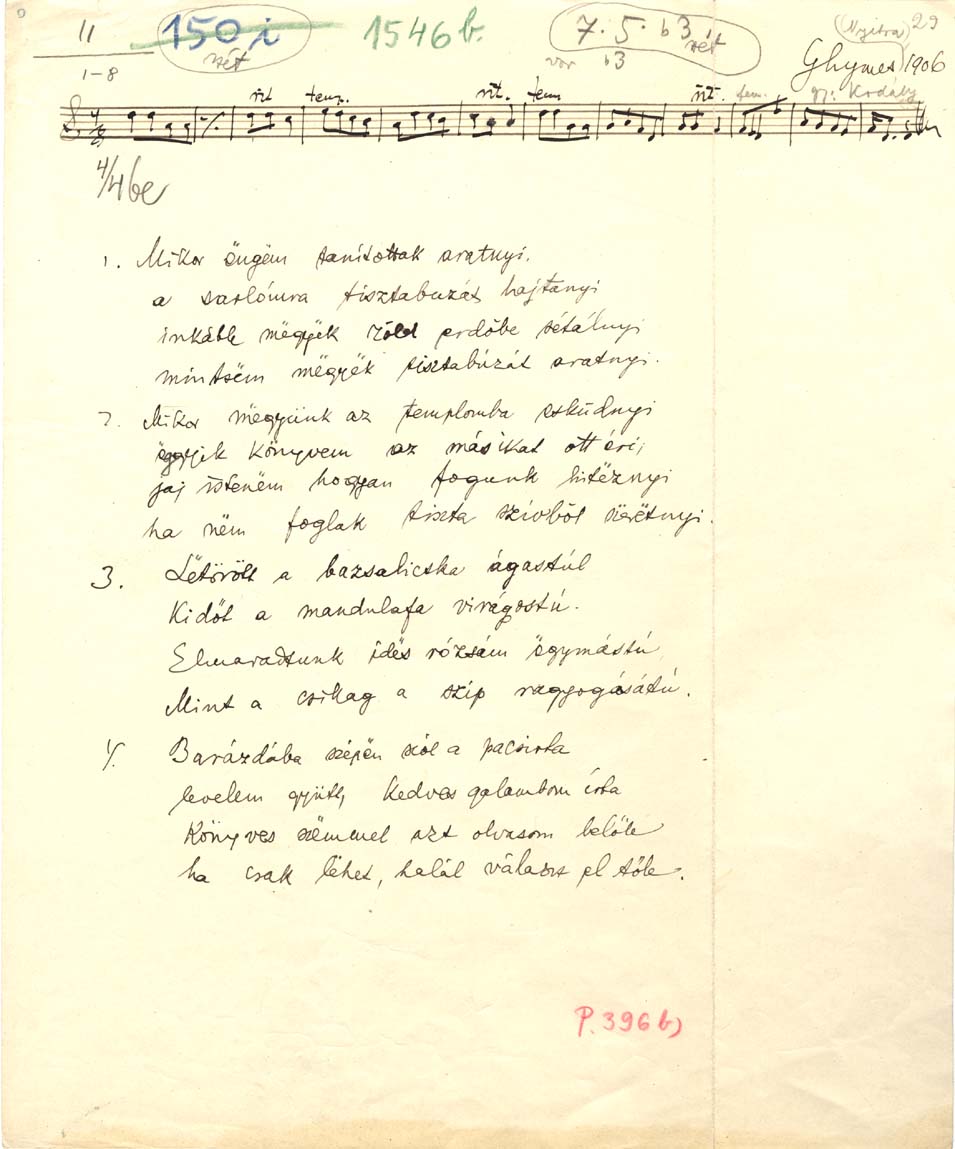 11
150 i
vét
1546 b.
7. 5. b3 1.
vét
vor b3
(Nyitra) 29
Ghymes 1906
gy: Kodály
1-8
rit temp. rit. tem rit. tem.
4/4be
1. Mikor öngëm tanítottak aratnyi.
a sarlómra tisztabuzát hajtanyi
inkább mëgyëk zöld erdőbe sétálnyi
mintsëm mëgyëk tisztabúzát aratnyi.
2. Mikor mëgyünk az templomba esküdnyi
ëggyik könyvem az másikat ott éri,
jaj istenëm hogyan fogunk hitëznyi
ha nëm foglak tiszta szívből szeretnyi.
3. Lëtörött a bazsalicska ágastúl
Kidőt a mandulafa virágostú.
Elmaradtunk idës rózsám ëgymástú
Mint a csillag a szip ragyogásátú.
4. Barázdába szépën szól a pacsirta
levelem gyütt, kedves galambom írta
Könyves szëmmel azt olvasom belőle
ha csak lëhet, halál válassz el tőle.
P. 396 b)